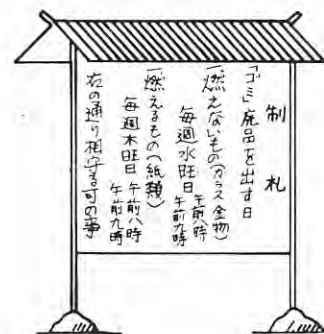 制札
「ゴミ」廃品を出す日
一燃えないもの(ガラス金物)
毎週水旺日
午前八時
午前九時
一燃えるもの(紙類)
毎週木旺日
午前八時
午前九時
右の通り相守る可の事